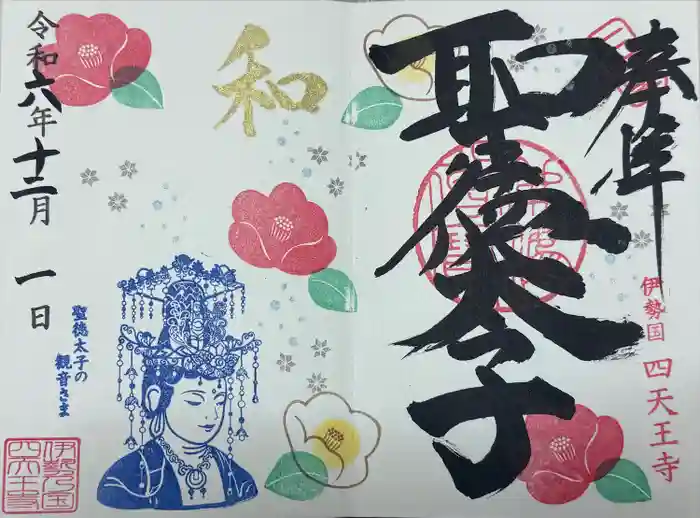 奉拝
聖徳太子
伊勢国 四天王寺
和
聖徳太子の
観音さま
令和六年十二月 一日
伊勢之国
四天王寺